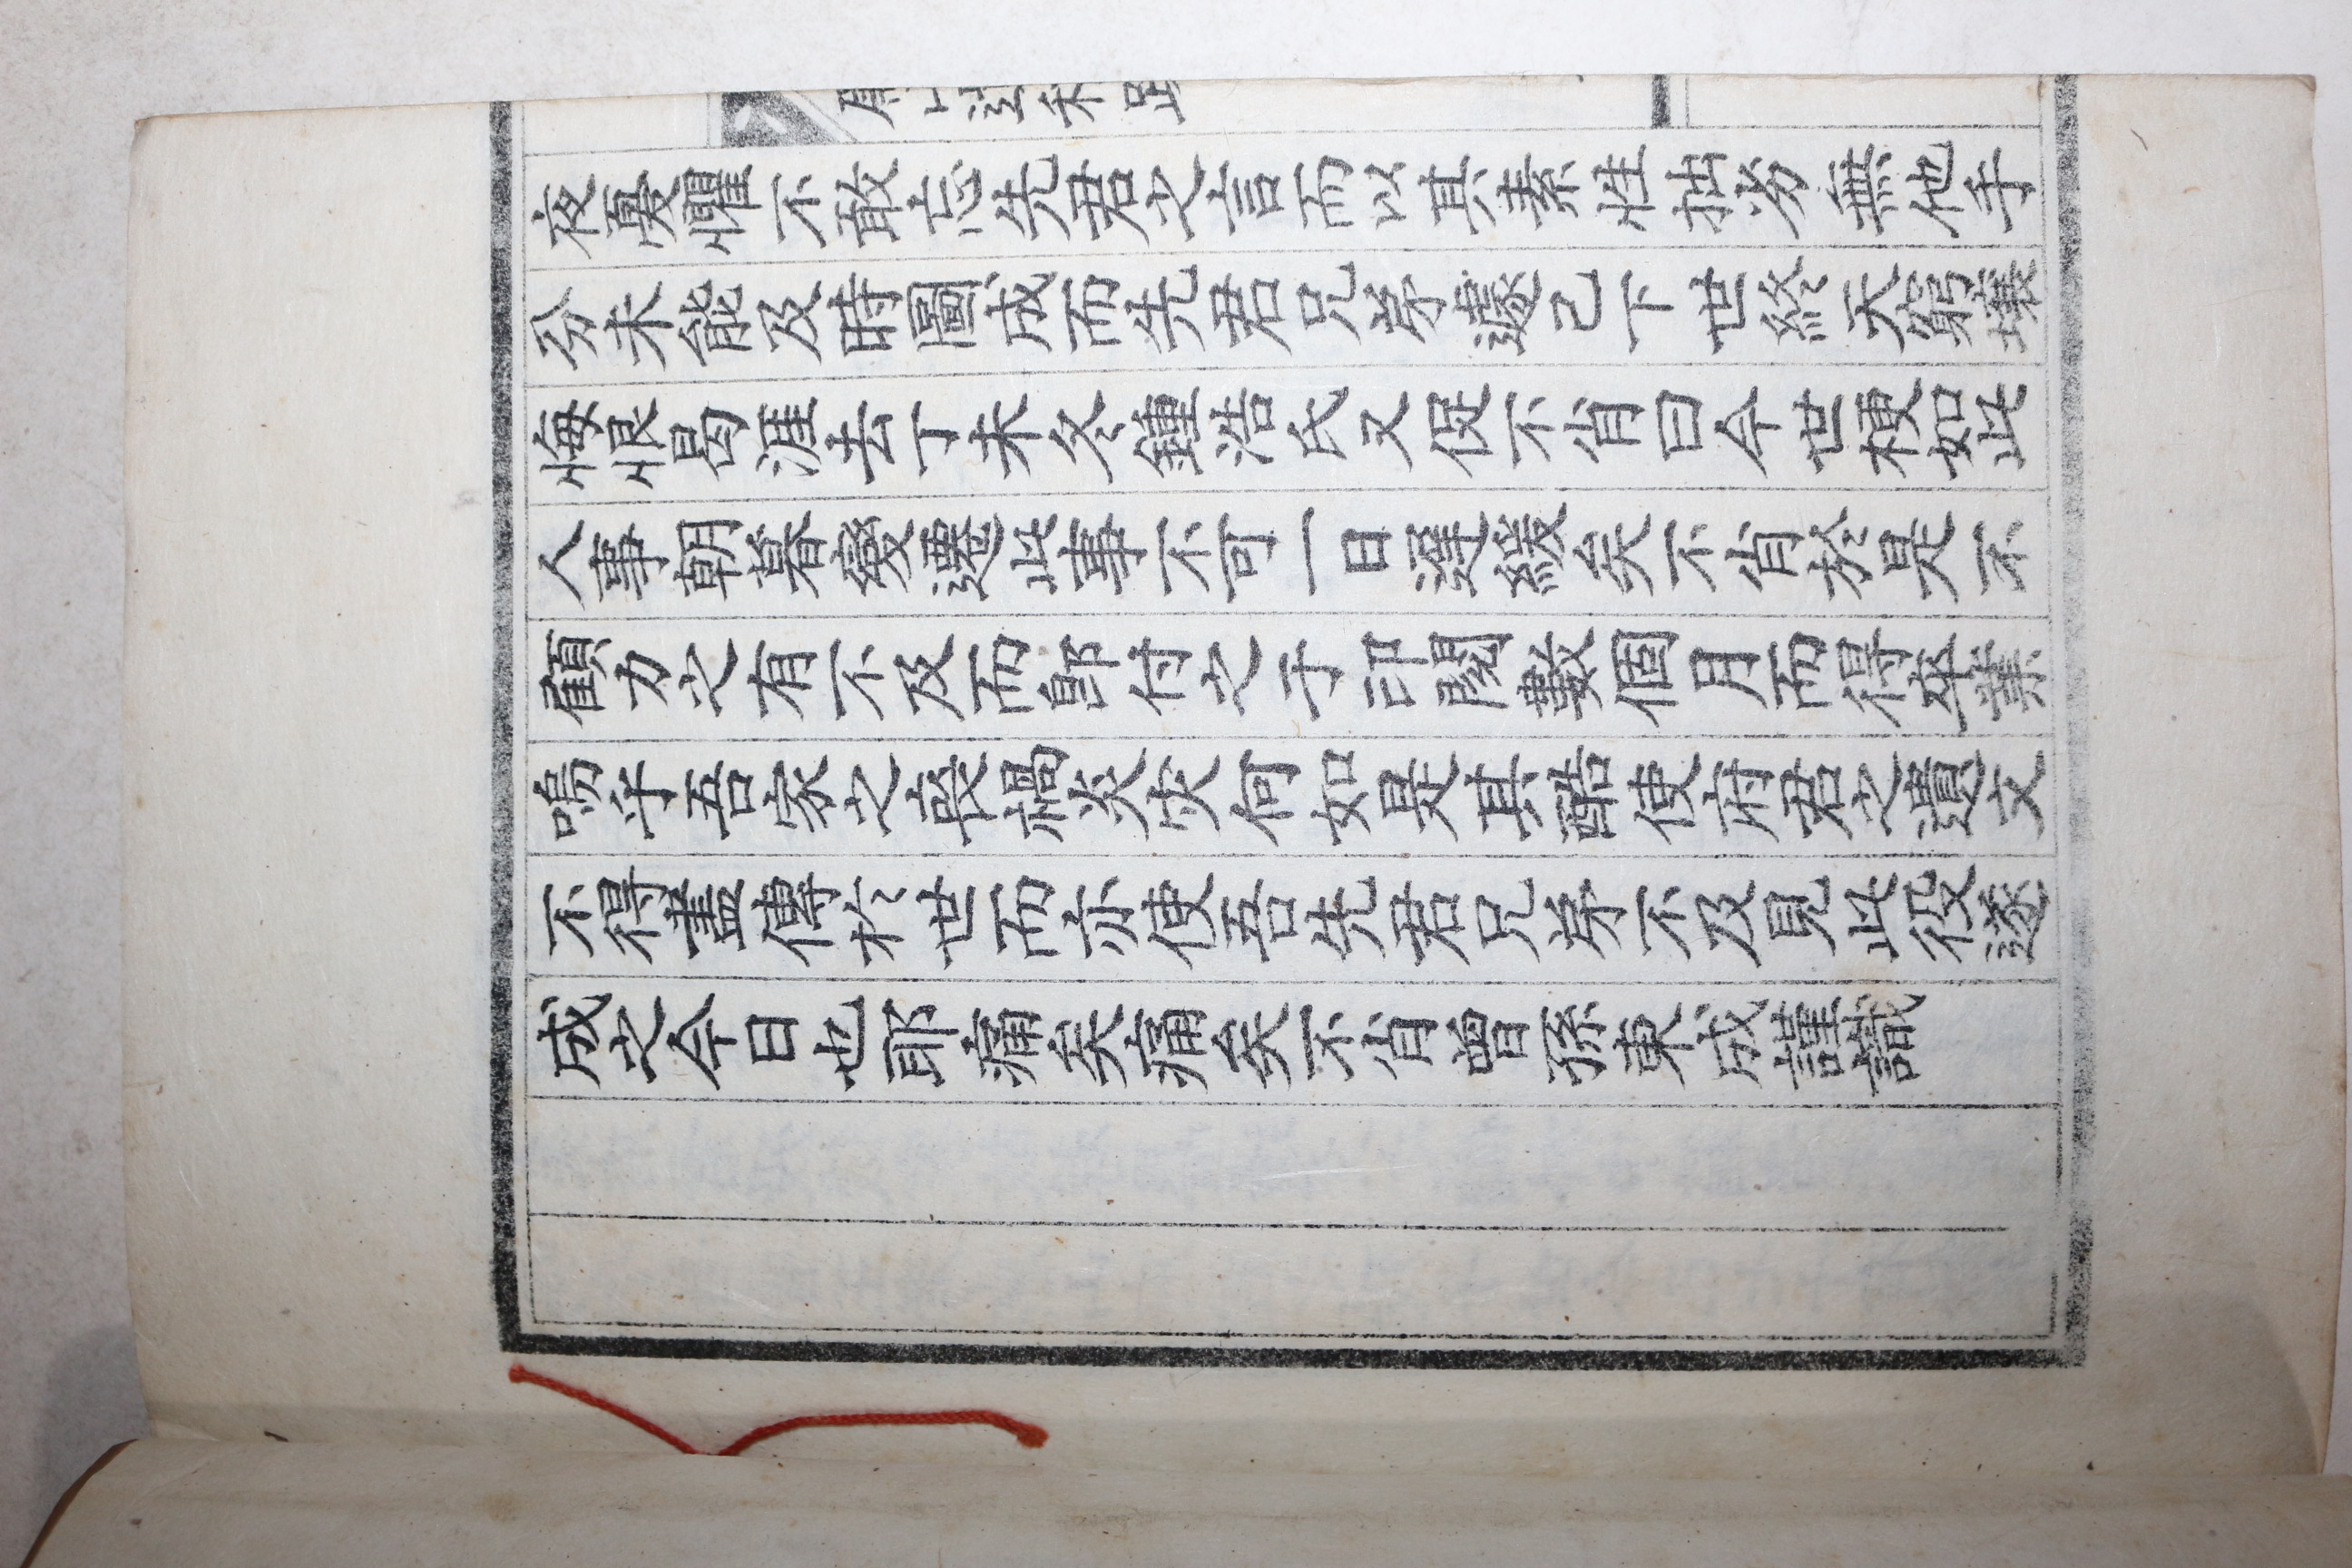 夜憂懼不敢忘先君之言而以其素性拙劣無他手
分未能及時圖成而先君兄弟遽已下世終天窮壤
悔恨曷涯去丁未冬鍾浩氏又促不肖曰今世梗如此
人事朝暮變遷此事不可一日遲緩矣不肖於是不
顧力之有不及而卽付之手印閱數個月而得卒業
嗚乎吾家之喪禍災灾何如是其酷使府君之遺文
不得盡傳於世而亦使吾先君兄弟不及見此役遂
成之今日也耶痛矣痛矣不肖曾孫東成謹識